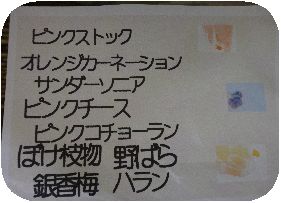 ピンクストック
オレンジカーネーション
サンダーソニア
ピンクチース
ピンクコチョーラン
ぼけ枝物 野ばら
銀香梅 ハラン